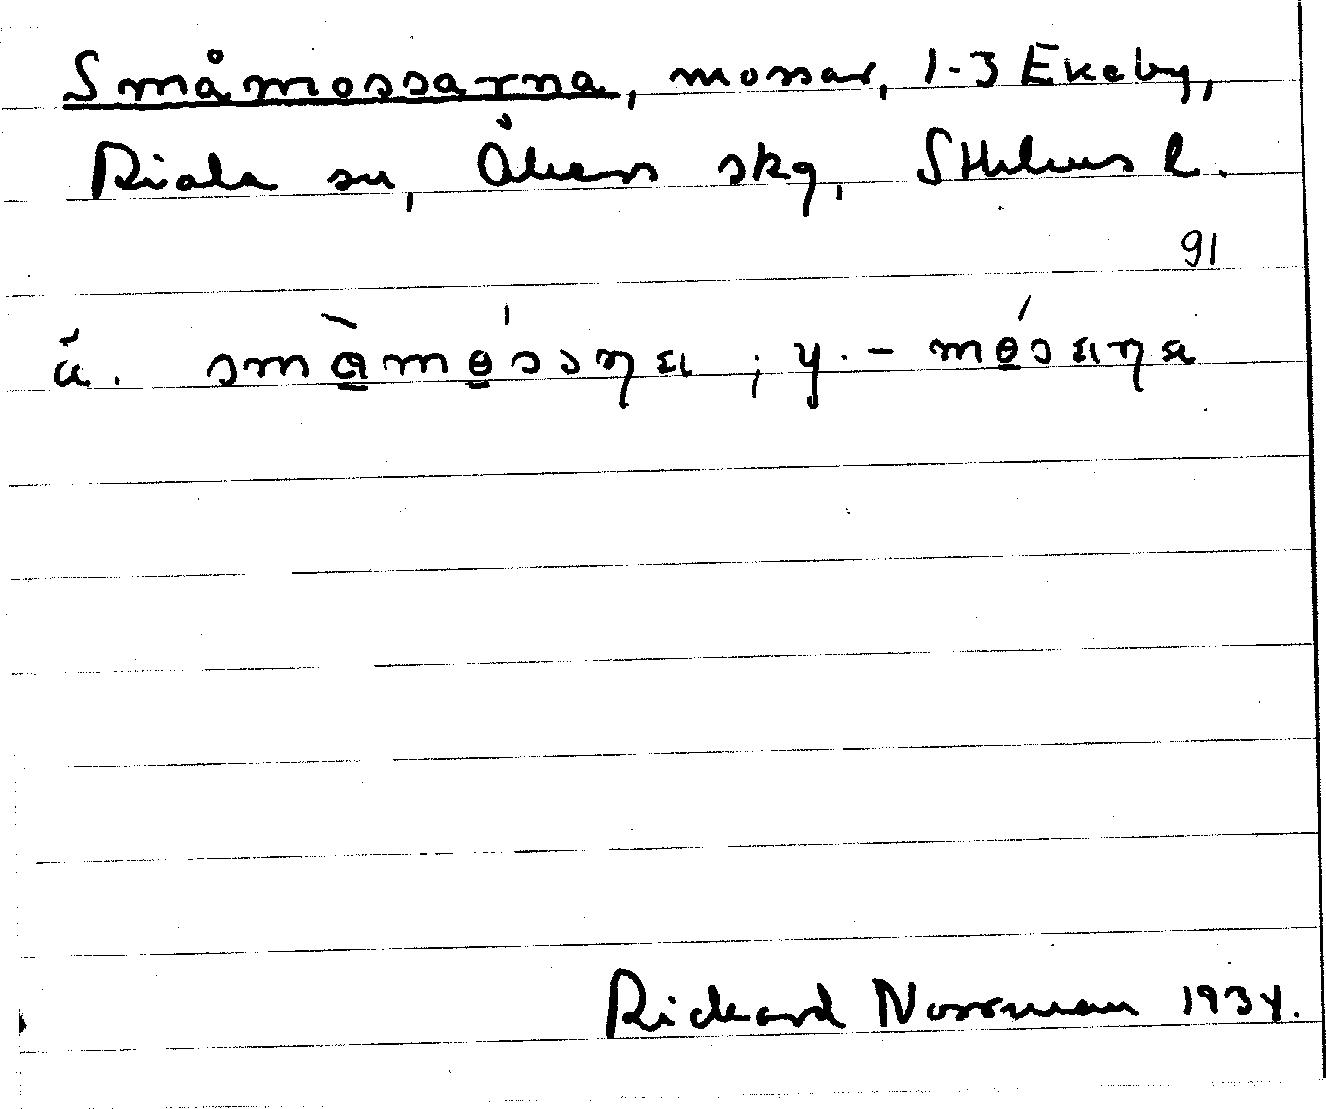 Småmossarna, mossar, 1-3 Ekeby,
Riala sn, Åkers skg, Sthlms l.
91
ä. smàmɵ́ssɳa ; y. - mɵ́saɳa
Rickard Norrman 1934.